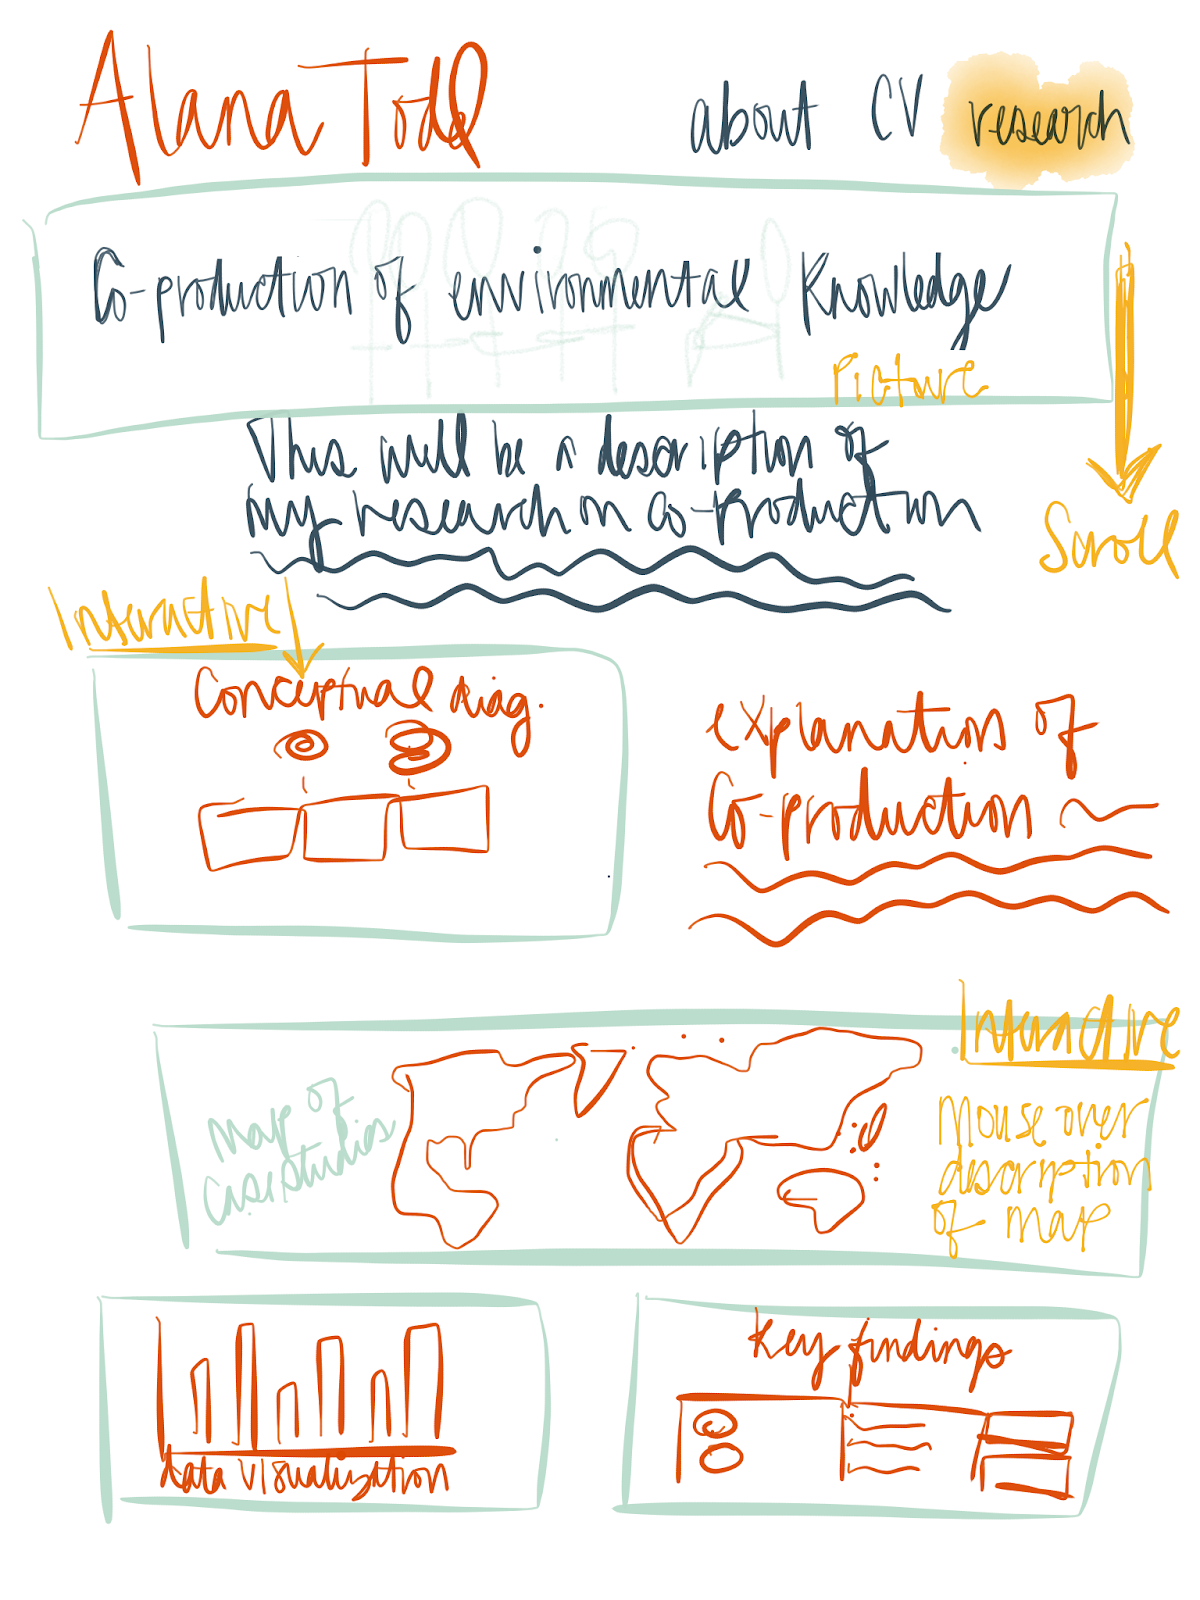 Alana Todd
about CV research
Co-production of environmental Knowledge
Picture
This will be a description of
my research on co-production
Scroll
Interactive
Conceptual diag.
explanation of
Co-production
Interactive
map of
case studies
Mouse over
description
of map
data visualization
Key findings